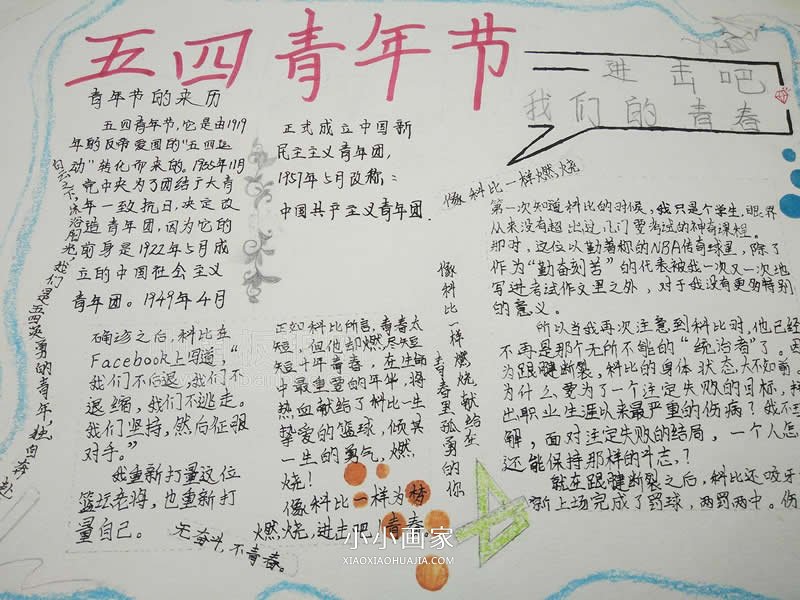 五四青年节
进击吧
我们的青春
青年节的来历
五四青年节,它是由1919
年的反帝爱国的"五四运
动"转化而来的,1935年11月
党中央为了团结广大青
年一致抗日,决定改
造青年团,因为它的
前身是1922年5月成
立的中国社会主义
青年团。1949年4月
正式成立中国新
民主主义青年团,
1957年5月改称:
中国共产主义青年团.
我们是五四英勇的青年,独自奔赴
像科比一样燃烧
第一次知道科比的时候,我只是个学生,眼界
从来没有超出过
那时,这位以勤著称的NBA传奇球星,除了
作为"勤奋刻苦"的代表被我一次又一次地
写进考试作文里之外,对于我没有更多特别
的意义。
所以当我再次注意到科比时,他已经
不再是那个无所不能的"统治者"了。因
为跟腱断裂,科比的身体状态大不如前。
为什么要为了一个注定失败的目标,付
出职业生涯以来最严重的伤病?我不理
解,面对注定失败的结局,一个人怎
还能保持那样的斗志?
就在跟腱断裂之后,科比还咬牙
新上场完成了罚球,两罚两中。伤
确诊之后,科比在
Facebook上写道,"
我们不后退,我们不
退缩,我们不逃走。
我们坚持,然后征服
对手。"
我重新打量这位
篮坛老将,也重新打
量自己。
无奋斗,不青春。
正如科比所言,青春太
短,但他却燃尽短
短十年青春,在生命
中最重要的年华,将
热血献给了科比一生
挚爱的篮球,倾其
一生的勇气,燃
烧!
像科比一样为梦
燃烧,进击吧!青春。
像科比一样燃烧献给在
青春里孤勇的你
小小画家
XIAOXIAOHUAJIA.COM